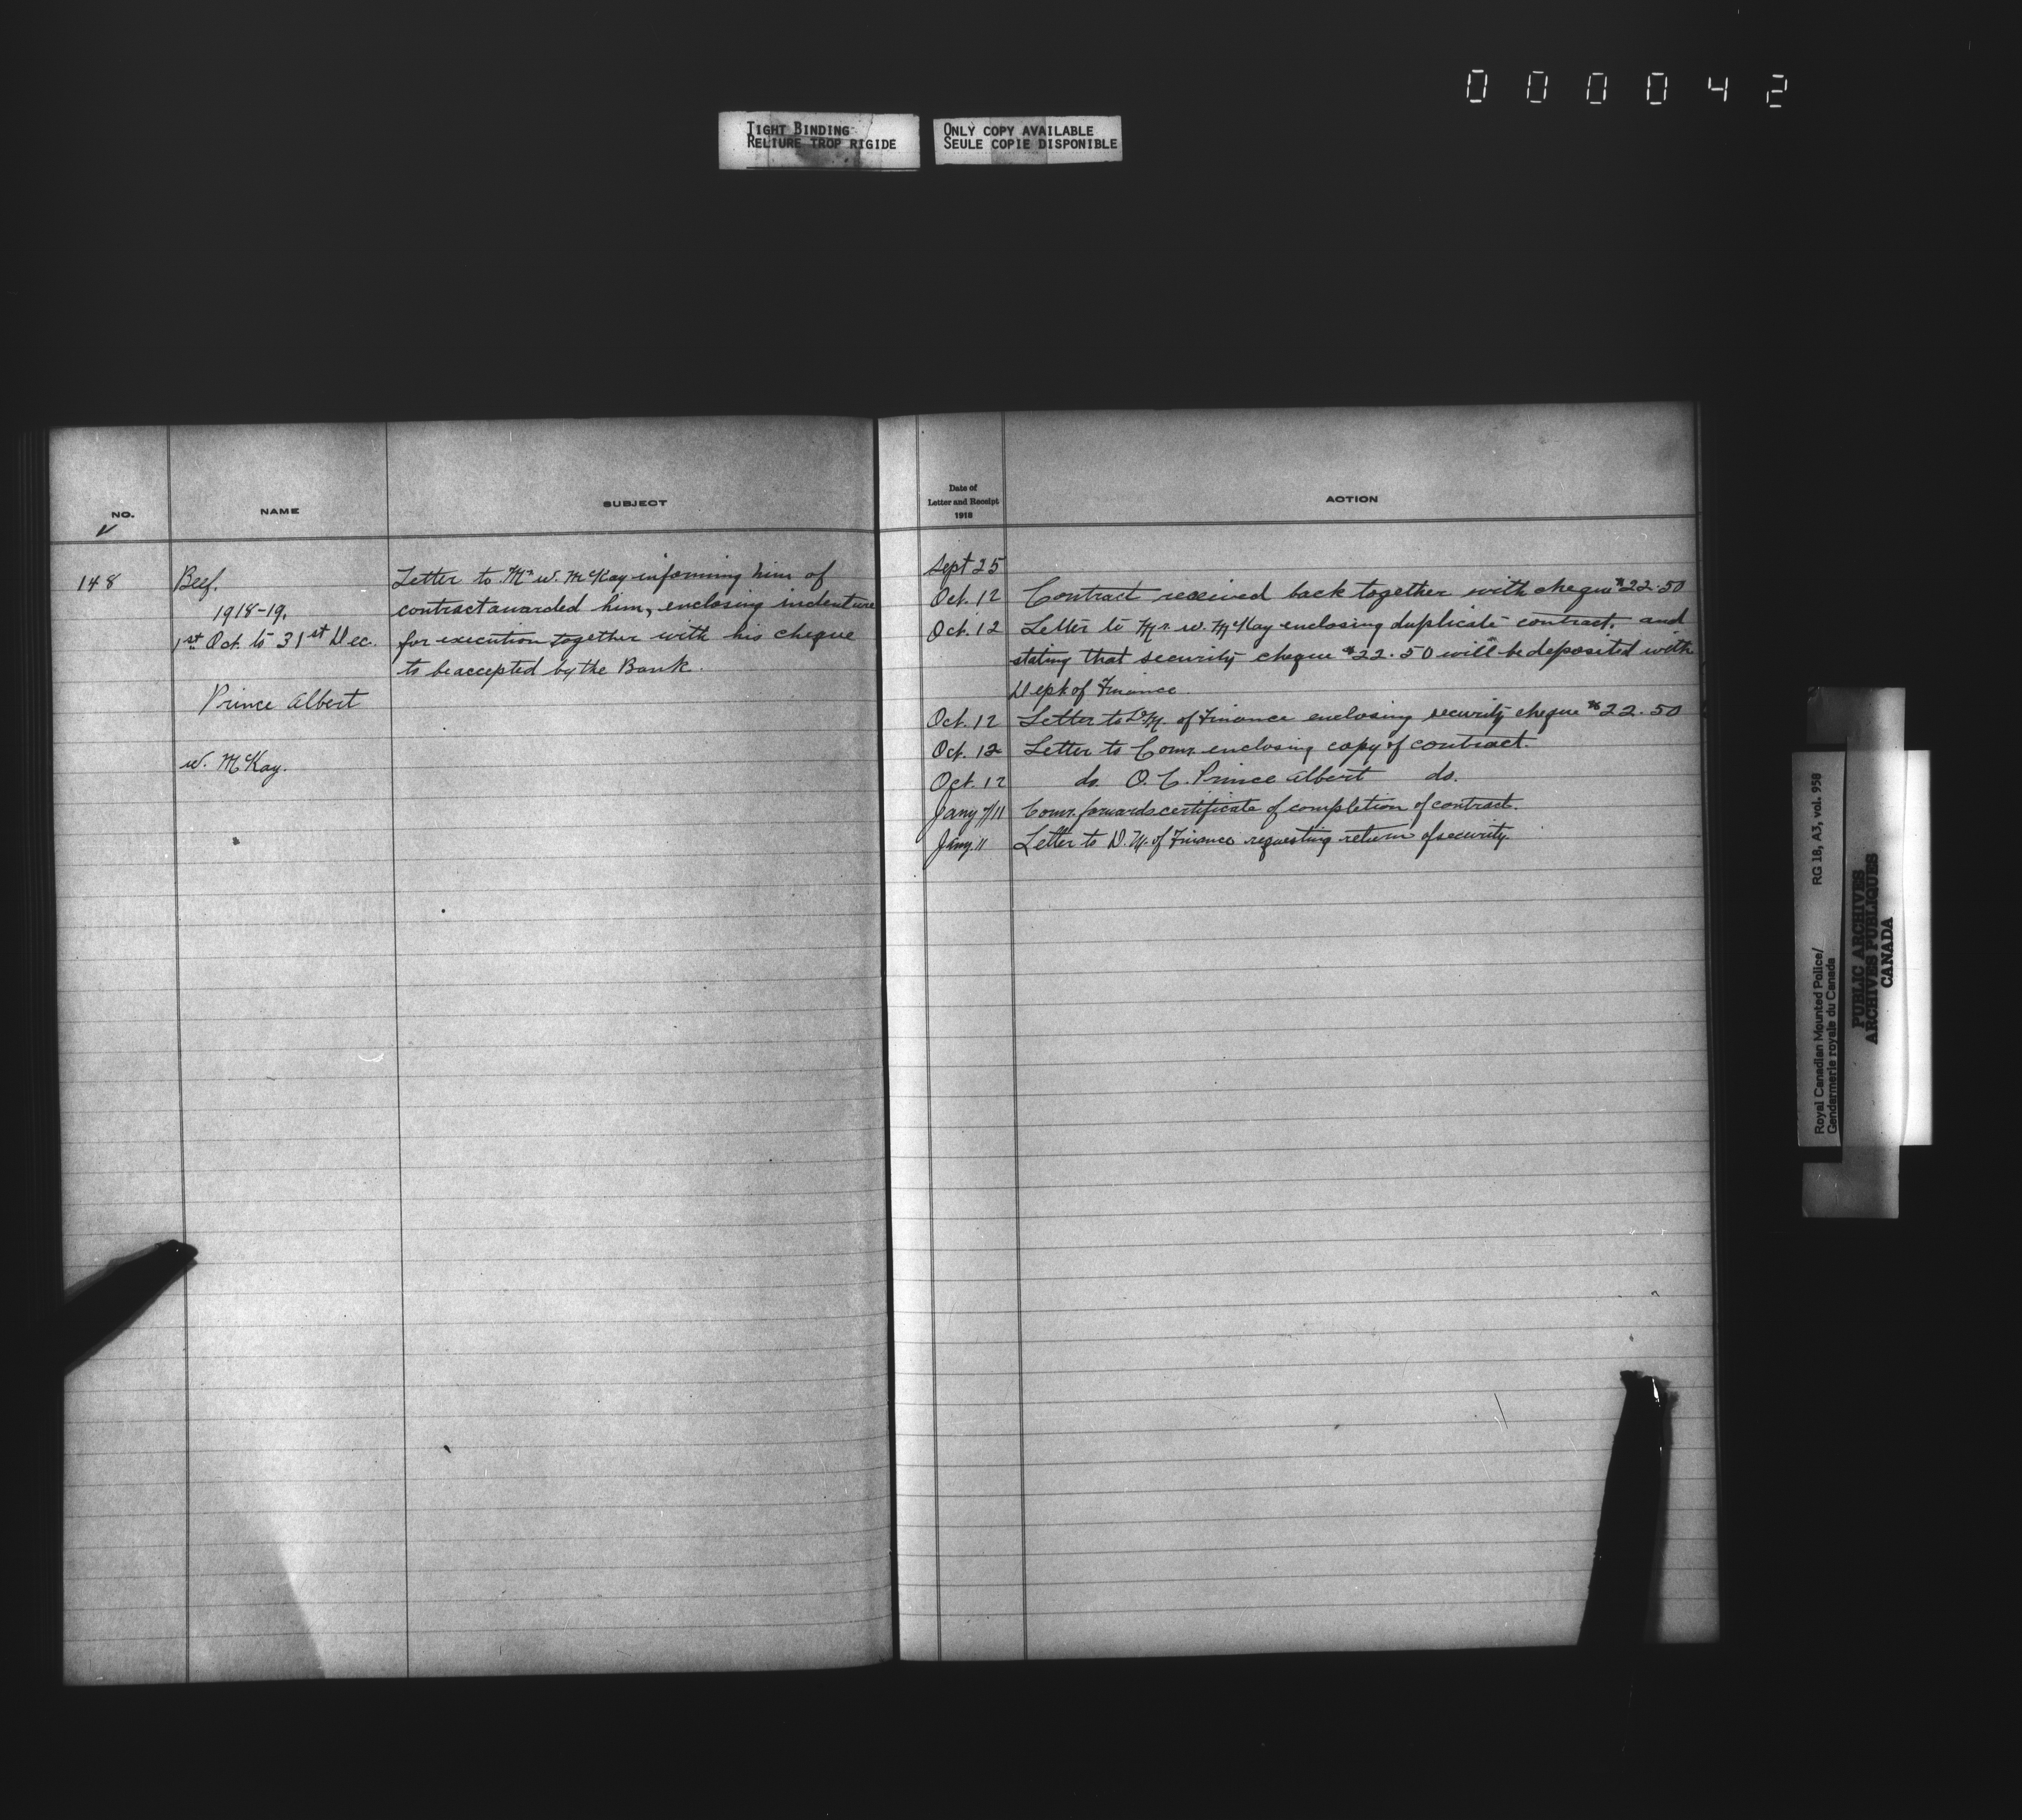 000042
TIGHT BINDING
RELIURE TROP RIGIDE
ONLY COPY AVAILABLE
SEULE COPIE DISPONIBLE
NO.
NAME
SUBJECT
148
Beef.
1918-19.
1st Oct. to 31st Dec.
Prince Albert
W. McKay.
Letter to Mr W. McKay informing him of
contract awarded him, enclosing indenture
for execution together with his cheque
to be accepted by the Bank.
Date of
Letter and Receipt
1918
ACTION
Sept 25
Oct. 12 Contract received back together with cheque $22.50
Oct. 12 Letter to Mr. W. McKay enclosing duplicate contract, and
stating that security cheque $22.50 will be deposited with
Dept of Finance.
Oct. 12 Letter to D.M. of Finance enclosing security cheque $22.50
Oct. 12 Letter to Comr. enclosing copy of contract.
Oct. 12 do. O.C. Prince Albert do.
Jany 7/11 Comr. forwards certificate of completion of contract.
Jany. 11 Letter to D.M. of Finance requesting return of security.
Royal Canadian Mounted Police/
Gendarmerie royale du Canada
RG 18, A3, vol. 958
PUBLIC ARCHIVES
ARCHIVES PUBLIQUES
CANADA